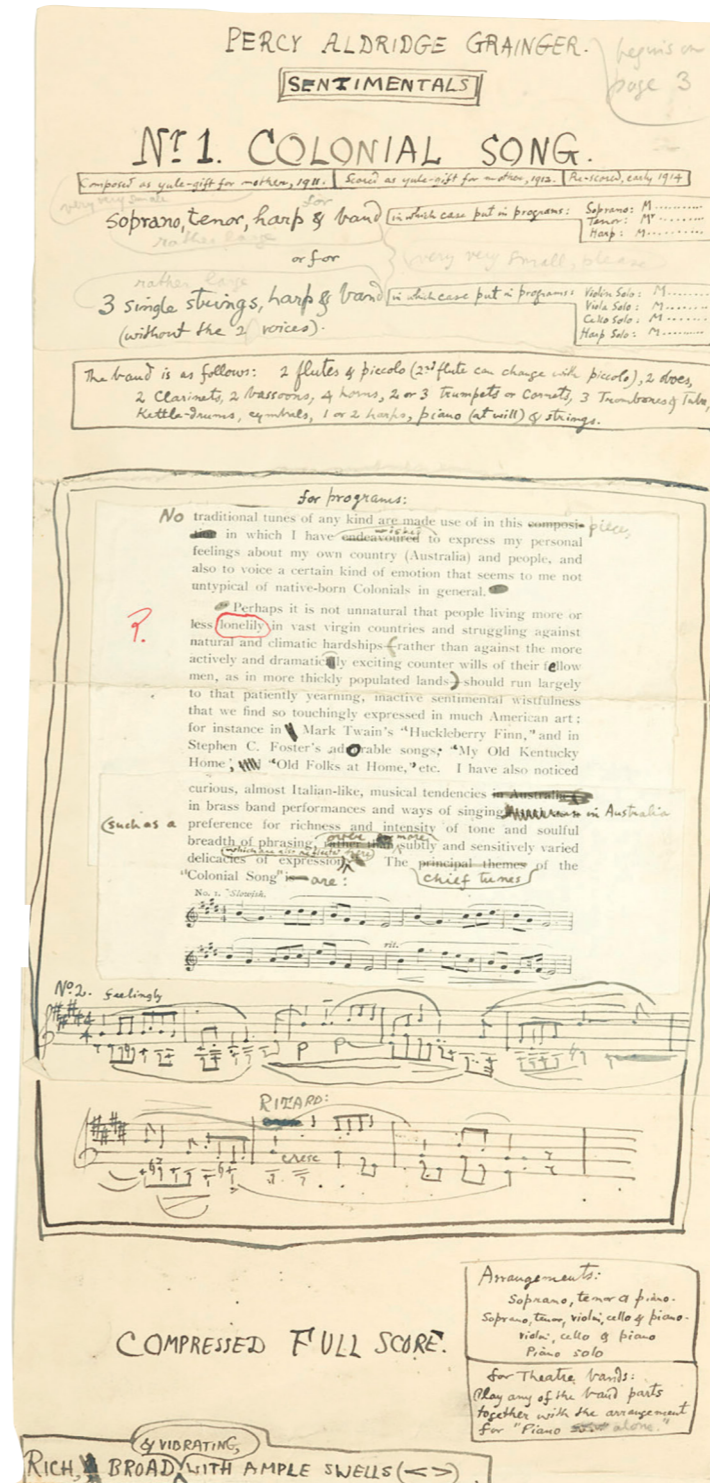 PERCY ALDRIDGE GRAINGER.
begins on
page 3
SENTIMENTALS
Nr. 1. COLONIAL SONG.
Composed as yule-gift for mother, 1911. Scored as yule-gift for mother, 1912. Re-scored, early 1914
very very small
for
soprano, tenor, harp & band in which case put in programs: Soprano: M..........
Tenor: Mr..........
Harp: M..........
rather large
or for
very very small, please
rather large
3 single strings, harp & band in which case put in programs: Violin Solo: M........
Viola Solo: M........
Cello Solo: M........
Harp Solo: M........
(without the 2 voices).
The band is as follows: 2 flutes & piccolo (2nd flute can change with piccolo), 2 oboes,
2 Clarinets, 2 bassoons, 4 horns, 2 or 3 trumpets or Cornets, 3 Trombones & Tuba,
Kettle-drums, cymbals, 1 or 2 harps, piano (at will) & strings.
for programs:
No traditional tunes of any kind are made use of in this composi- piece,
tion in which I have endeavoured wished to express my personal
feelings about my own country (Australia) and people, and
also to voice a certain kind of emotion that seems to me not
untypical of native-born Colonials in general.
Perhaps it is not unnatural that people living more or
?. less lonelily in vast virgin countries and struggling against
natural and climatic hardships (rather than against the more
actively and dramatically exciting counter wills of their fellow
men, as in more thickly populated lands) should run largely
to that patiently yearning, inactive sentimental wistfulness
that we find so touchingly expressed in much American art;
for instance in Mark Twain's "Huckleberry Finn," and in
Stephen C. Foster's adorable songs, "My Old Kentucky
Home", "Old Folks at Home," etc. I have also noticed
curious, almost Italian-like, musical tendencies in Australia
in brass band performances and ways of singing in Australia
(such as a preference for richness and intensity of tone and soulful
breadth of phrasing, over more rather than subtly and sensitively varied
delicacies of expression The principal themes of the
"Colonial Song" is are: chief tunes
No. 1. Slowish.
rit.
No. 2. feelingly
RITARD:
cresc
Arrangements:
Soprano, tenor & piano.
Soprano, tenor, violin, cello & piano.
violin, cello & piano
Piano solo
COMPRESSED FULL SCORE.
for Theatre bands:
Play any of the band parts
together with the arrangement
for "Piano alone."
& VIBRATING,
RICH, BROAD WITH AMPLE SWELLS (< >)